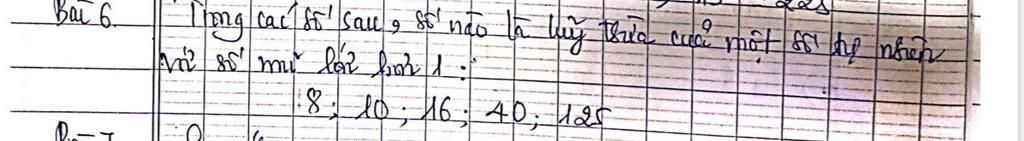 Bài 6. Trong các số sau, số nào là luỹ thừa của một số tự nhiên
với số mũ lớn hơn 1 :
8; 10; 16; 40; 125